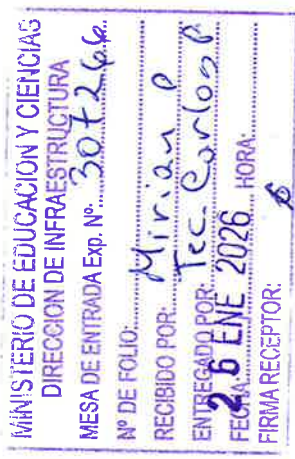 MINISTERIO DE EDUCACION Y CIENCIAS
DIRECCION DE INFRAESTRUCTURA
MESA DE ENTRADA Exp. Nº: 307266
Nº DE FOLIO:
RECIBIDO POR: Mirian P
ENTREGADO POR: Tec. Carlos P
FECHA: 26 ENE 2026 HORA:
FIRMA RECEPTOR: